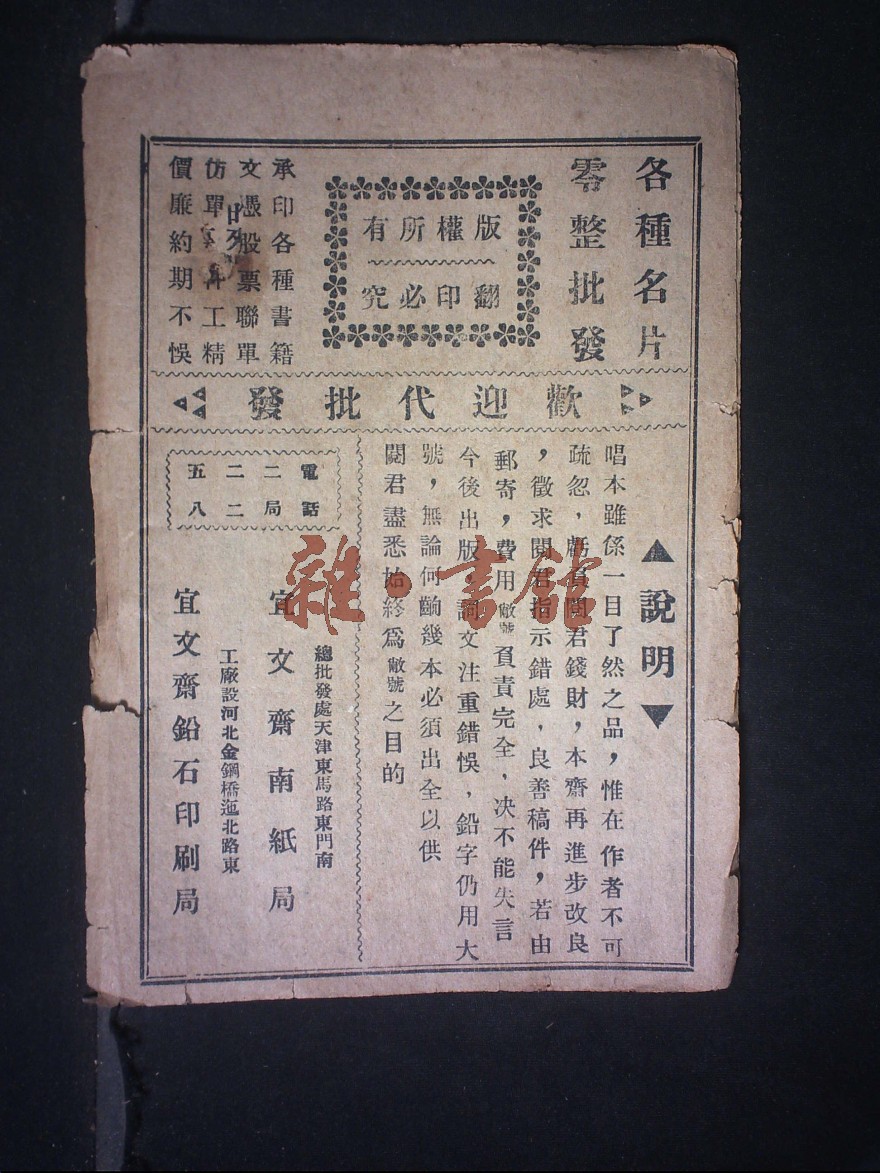 各種名片
零整批發
版權所有
翻印必究
承印各種書籍
文憑股票聯單
仿單 件工精
價廉約期不悞
歡迎代批發
說明
唱本雖係一目了然之品，惟在作者不可
疏忽，虧負閱君錢財，本齋再進步改良
，徵求閱君指示錯處，良善稿件，若由
郵寄，費用敝號負責完全，决不能失言
今後出版，詞文注重錯悞，鉛字仍用大
號，無論何齣幾本必須出全以供
閱君盡悉始終爲敝號之目的
電話
二局
二二
五八
總批發處天津東馬路東門南
宜文齋南紙局
工廠設河北金鋼橋迤北路東
宜文齋鉛石印刷局
雜·書館